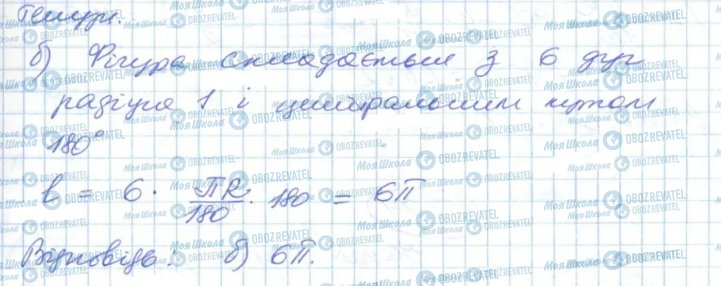 б) Фігура складається з 6 дуг
радіуса 1 і центральним кутом
180°
l = 6 · πR/180 · 180 = 6π
Відповідь: б) 6π.
МояШкола OBOZREVATEL